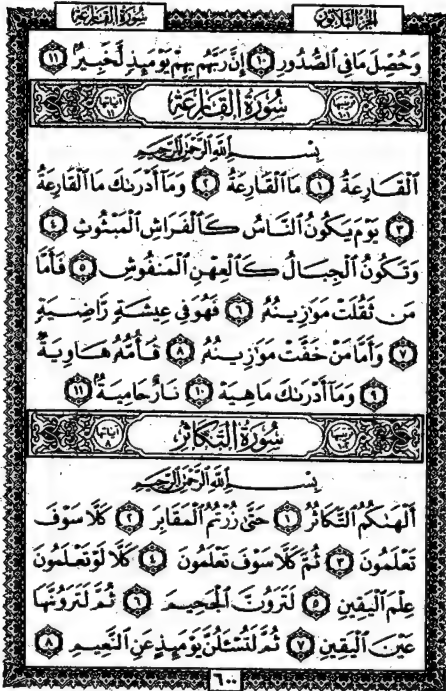 الجزء الثلاثون سورة القارعة
وَحُصِّلَ مَا فِي ٱلصُّدُورِ ١٠ إِنَّ رَبَّهُم بِهِمْ يَوْمَئِذٍ لَّخَبِيرٌ ١١
ترتيبها ١٠١ سُورَةُ القَارِعَةِ آياتها ١١
بِسْمِ ٱللَّهِ ٱلرَّحْمَٰنِ ٱلرَّحِيمِ
ٱلْقَارِعَةُ ١ مَا ٱلْقَارِعَةُ ٢ وَمَآ أَدْرَىٰكَ مَا ٱلْقَارِعَةُ
٣ يَوْمَ يَكُونُ ٱلنَّاسُ كَٱلْفَرَاشِ ٱلْمَبْثُوثِ ٤
وَتَكُونُ ٱلْجِبَالُ كَٱلْعِهْنِ ٱلْمَنفُوشِ ٥ فَأَمَّا
مَن ثَقُلَتْ مَوَٰزِينُهُۥ ٦ فَهُوَ فِى عِيشَةٍ رَّاضِيَةٍ
٧ وَأَمَّا مَنْ خَفَّتْ مَوَٰزِينُهُۥ ٨ فَأُمُّهُۥ هَاوِيَةٌ
٩ وَمَآ أَدْرَىٰكَ مَا هِيَهْ ١٠ نَارٌ حَامِيَةٌۢ ١١
ترتيبها ١٠٢ سُورَةُ التَّكَاثُرِ آياتها ٨
بِسْمِ ٱللَّهِ ٱلرَّحْمَٰنِ ٱلرَّحِيمِ
أَلْهَىٰكُمُ ٱلتَّكَاثُرُ ١ حَتَّىٰ زُرْتُمُ ٱلْمَقَابِرَ ٢ كَلَّا سَوْفَ
تَعْلَمُونَ ٣ ثُمَّ كَلَّا سَوْفَ تَعْلَمُونَ ٤ كَلَّا لَوْ تَعْلَمُونَ
عِلْمَ ٱلْيَقِينِ ٥ لَتَرَوُنَّ ٱلْجَحِيمَ ٦ ثُمَّ لَتَرَوُنَّهَا
عَيْنَ ٱلْيَقِينِ ٧ ثُمَّ لَتُسْـَٔلُنَّ يَوْمَئِذٍ عَنِ ٱلنَّعِيمِ ٨
٦٠٠